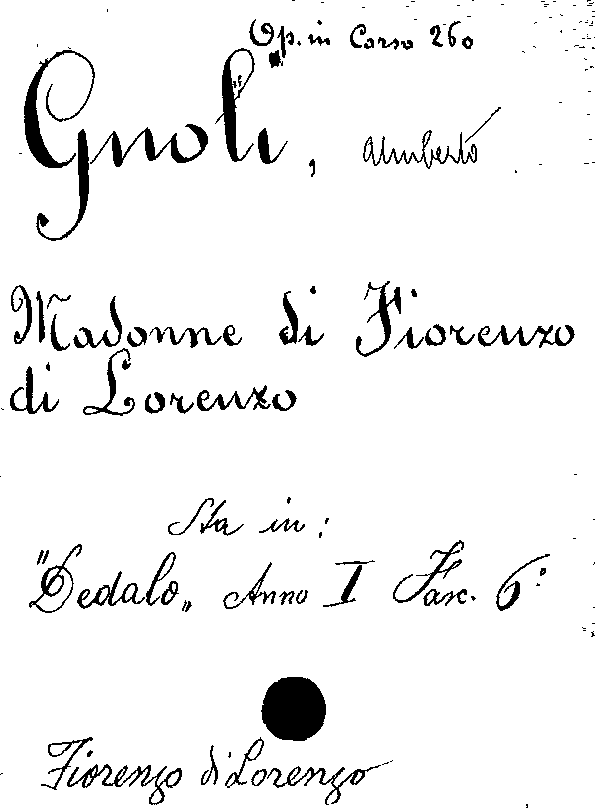 Op. in Corso 260
Gnoli, Umberto
Madonne di Fiorenzo
di Lorenzo
Sta in:
"Dedalo„ Anno I Fasc. 6°
Fiorenzo di Lorenzo